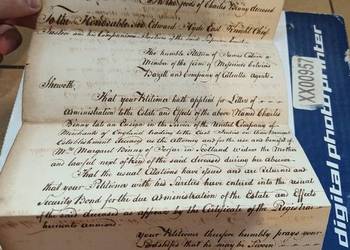 In the Goods of Charles Binny deceased
To the Honorable Sir Edward Hyde East Knight Chief
Justice and his Companions Justices of the
The humble Petition of James Calder a
Member of the firm of Messieurs
and Company of Calcutta Agents.
Sheweth,
That your Petitioner hath applied for Letters of
Administration to the Estate and Effects of the above Named Charles
Binny late an Ensign in the Service of the United Company of
Merchands of England trading to the East Indies on their
Establishment deceased as the attorney and for the use and benefit of
Mrs Margaret Binny of Forfar in Scotland Widow the Mother
and lawful next of King of the said deceased during her absence
That the usual Citations have issued and are returned and
that your Petitioner with his Sureties have entered into the usual
Security Bond for the due Administration of the Estate and Effects
of the said deceased as appears by the Certificate of the Registrar
hereunto annexed
Your Petitioner therefore humbly prays your
Lordships that he may be
XX00957
digital photo printer